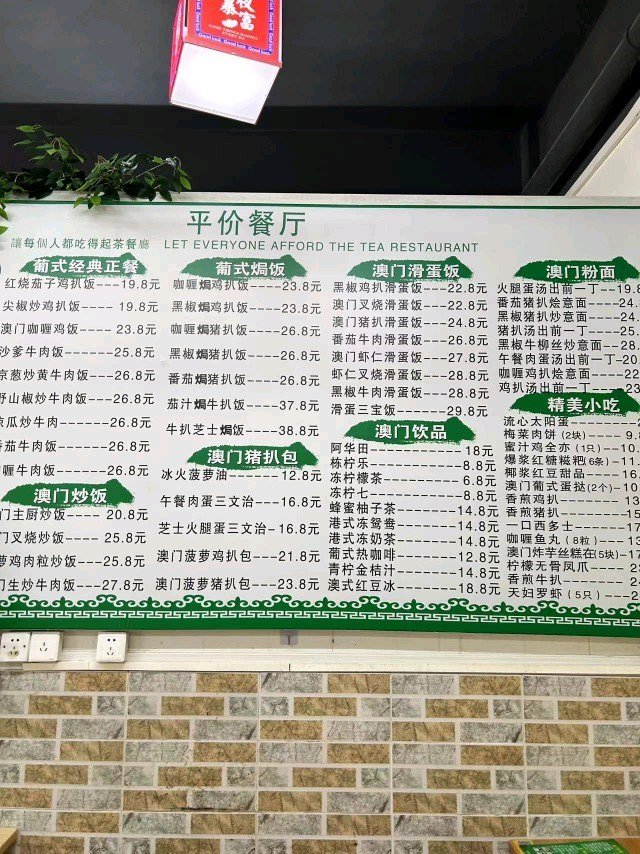 Good luck
富
暴
平价餐厅
讓每個人都吃得起茶餐廳 LET EVERYONE AFFORD THE TEA RESTAURANT
葡式经典正餐
红烧茄子鸡扒饭---19.8元
尖椒炒鸡扒饭---19.8元
澳门咖喱鸡饭---23.8元
沙爹牛肉饭----25.8元
京葱炒黄牛肉饭---26.8元
野山椒炒牛肉饭---26.8元
瓜炒牛肉----26.8元
番茄牛肉饭----26.8元
喱牛肉饭----26.8元
澳门炒饭
门主厨炒饭---- 20.8元
门叉烧炒饭----25.8元
萝鸡肉粒炒饭---25.8元
门生炒牛肉饭---27.8元
葡式焗饭
咖喱焗鸡扒饭---23.8元
黑椒焗鸡扒饭---23.8元
咖喱焗猪扒饭---26.8元
黑椒焗猪扒饭---26.8元
番茄焗猪扒饭---26.8元
茄汁焗牛扒饭---37.8元
牛扒芝士焗饭---38.8元
澳门猪扒包
冰火菠萝油----12.8元
午餐肉蛋三文治--16.8元
芝士火腿蛋三文治-16.8元
澳门菠萝鸡扒包---21.8元
澳门菠萝猪扒包---23.8元
澳门滑蛋饭
黑椒鸡扒滑蛋饭---22.8元
澳门叉烧滑蛋饭---22.8元
澳门猪扒滑蛋饭---24.8元
番茄牛肉滑蛋饭---26.8元
澳门虾仁滑蛋饭---27.8元
虾仁叉烧滑蛋饭---28.8元
黑椒牛肉滑蛋饭---28.8元
滑蛋三宝饭----29.8元
澳门饮品
阿华田---- 18元
栋柠乐---- 8.8元
冻柠檬茶---- 6.8元
冻柠七---- 8.8元
蜂蜜柚子茶---- 14.8元
港式冻鸳鸯---- 14.8元
港式冻奶茶---- 14.8元
葡式热咖啡---- 12.8元
青柠金桔汁---- 14.8元
澳式红豆冰---- 18.8元
澳门粉面
火腿蛋汤出前一丁--19.8
番茄猪扒烩意面---24.
黑椒猪扒炒意面---24.
猪扒汤出前一丁---25
黑椒牛柳丝炒意面--28.
午餐肉蛋汤出前一丁-20.
咖喱鸡扒烩意面---23.
鸡扒汤出前一丁---22.
精美小吃
流心太阳蛋----2
梅菜肉饼(2块)---9.
蜜汁鸡全亦(1只)--10.
爆浆红糖糍粑(6条)--11.
椰浆红豆甜品---16.
澳门葡式蛋挞(2个)-10
香煎鸡扒----
香煎猪扒----
一口西多士----
咖喱鱼丸(8粒)---
澳门炸芋丝糕在(5块)---
柠檬无骨凤爪---
香煎牛扒----
天妇罗虾(5只)---